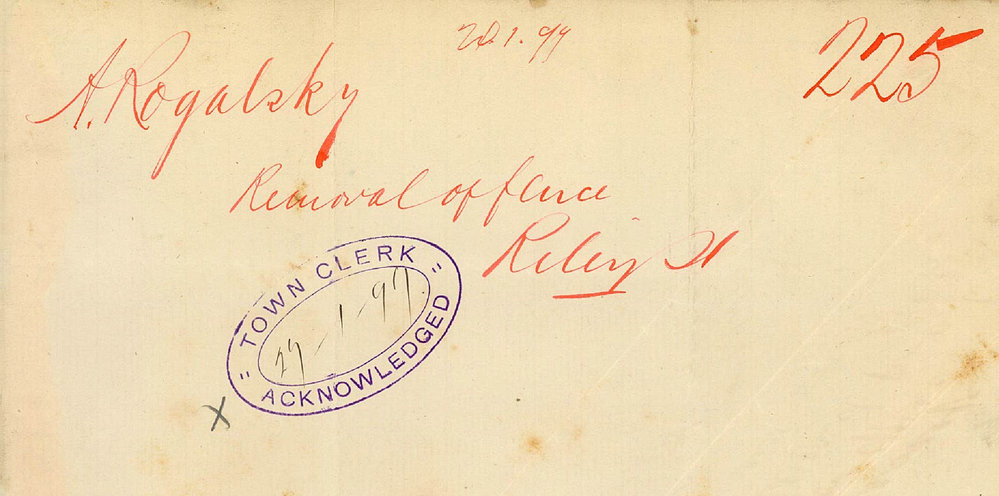 225
A. Rogalsky
Removal of fence
Riley St
TOWN CLERK
27-1-99
ACKNOWLEDGED
X